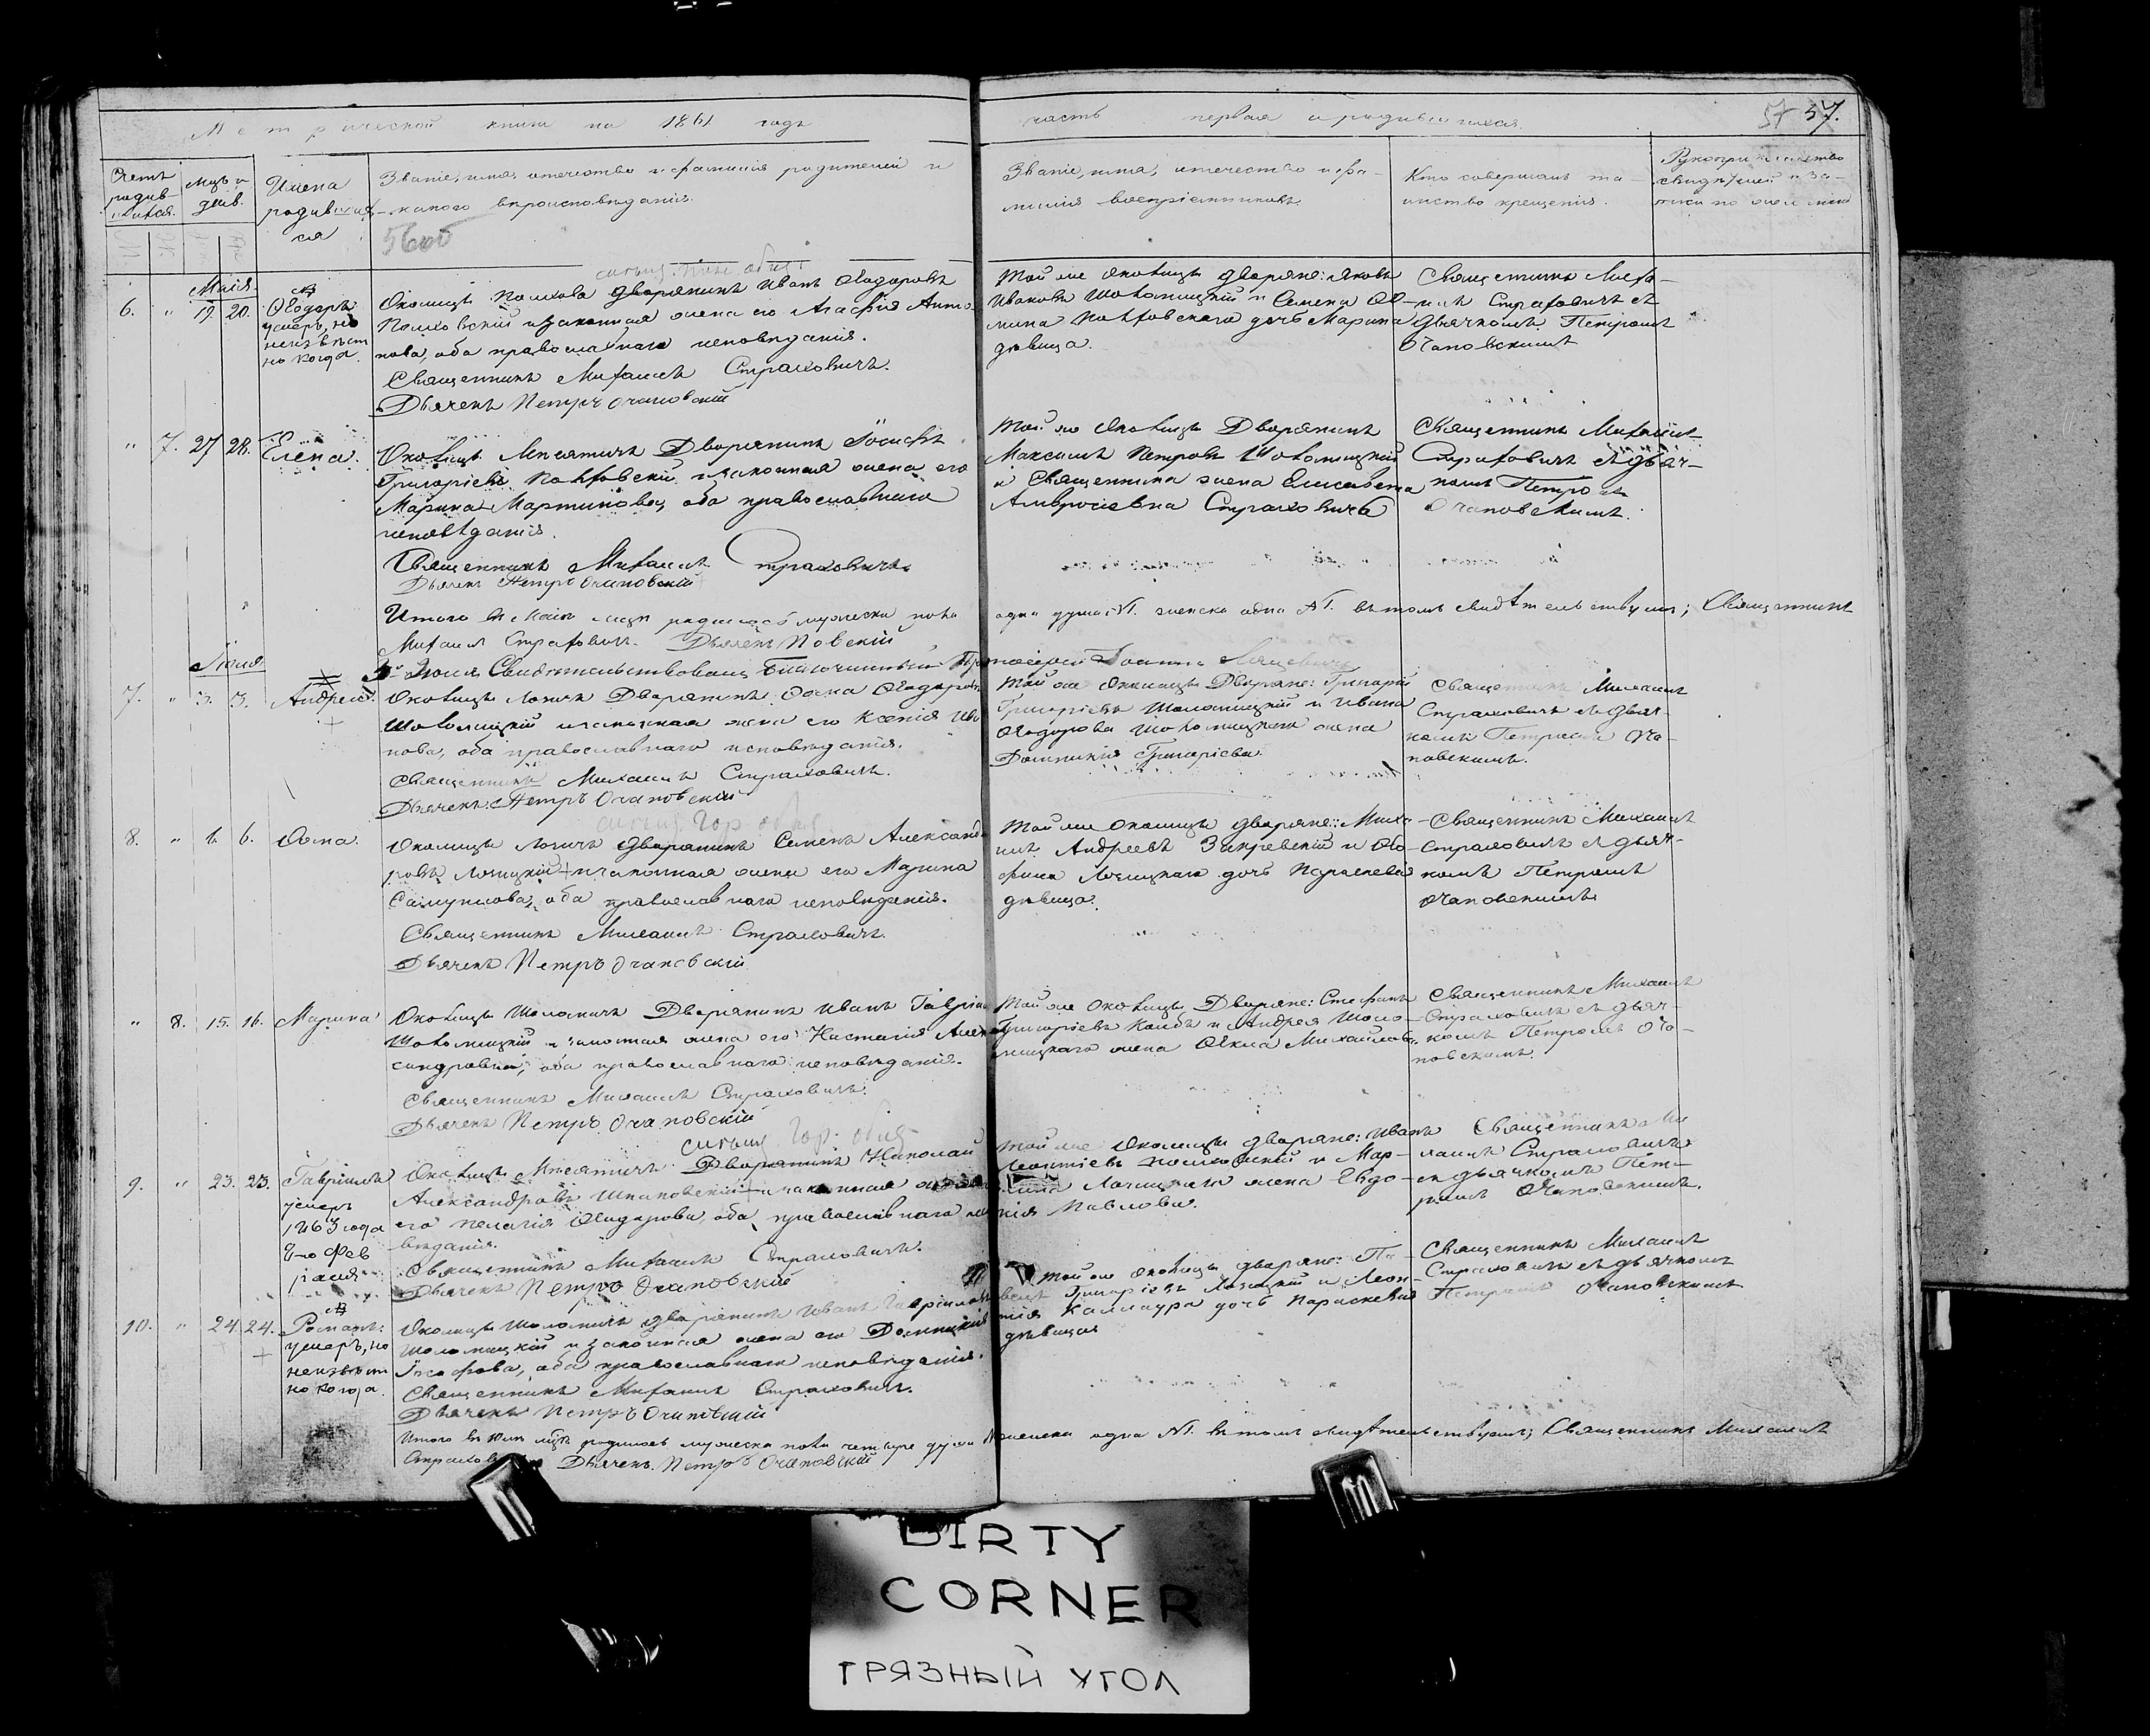 Метрической книги на 1861 годъ
часть первая о родившихся
57.
Счетъ родив-шихся.
Мцъ и день.
Имена родивших-ся
Званіе, имя, отечество и фамилія родителей и
какого вѣроисповѣданія.
Званіе, имя, отечество и фа-
милія воспріемниковъ.
Кто совершалъ та-
инство крещенія.
Рукоприкладство
свидѣтелей и за-
писи по
56об
Маія
6. " 19. 20. Ѳеодоръ
умеръ, но
неизвѣст
но когда.
Околицы дворянинъ Иванъ Ѳеодоровъ
и законная жена его Агафія Анто-
нова, оба православнаго исповѣданія.
Священникъ Михаилъ Страховичъ.
Дьячекъ Петръ Очаповскій
Той же околицы дворяне: Яковъ
Ивановъ Шоломицкій и Семена
дочь Марина
дѣвица.
Священникъ Миха-
илъ Страховичъ съ
дьячкомъ Петромъ
Очаповскимъ
" 7. 27 28. Елена.
Околицы Дворянинъ Іосифъ
Григорієвъ и законная жена его
Марина Мартинова, оба православнаго
исповѣданія.
Священникъ Михаилъ Страховичъ.
Дьячекъ Петръ Очаповскій
Той же околицы Дворянинъ
Максимъ Петровъ Шоломицкій
и Священника жена Елисавета
Амвросіевна Страховичъ
Священникъ Михаилъ
Страховичъ съ дьяч-
комъ Петромъ
Очаповскимъ.
Итого въ Маіи мцѣ родилось мужеска пола одна душа №. женска одна №. въ томъ свидѣтельствуемъ; Священникъ
Михаилъ Страховичъ. Дьячекъ
Іюня
Іюня Свидѣтельствовалъ Благочинный Протоіерей Іоаннъ
7. " 3. 3. Андрей.
Околицы Дворянинъ Ѳома Ѳеодоровъ
Шоломицкій и законная жена его Ксенія Ива-
нова, оба православнаго исповѣданія.
Священникъ Михаилъ Страховичъ.
Дьячекъ Петръ Очаповскій
Той же околицы Дворяне: Григорій
Григорієвъ Шоломицкій и Ивана
Ѳеодорова Шоломицкаго жена
Домникія Григорієва.
Священникъ Михаилъ
Страховичъ съ дьяч-
комъ Петромъ Оча-
повскимъ.
8. " 6. 6. Ѳома.
Околицы дворянинъ Семенъ Александ-
ровъ и законная жена его Марина
Самуилова, оба православнаго исповѣданія.
Священникъ Михаилъ Страховичъ.
Дьячекъ Петръ Очаповскій
Той же околицы дворяне: Миха-
илъ Андреевъ Закревскій и
дочь Параскевія
дѣвица.
Священникъ Михаилъ
Страховичъ съ дьяч-
комъ Петромъ
Очаповскимъ
" 8. 15. 16. Марина
Околицы Шоломичъ Дворянинъ Иванъ
Шоломицкій и законная жена его Настасія Алек-
сандровна, оба православнаго исповѣданія.
Священникъ Михаилъ Страховичъ.
Дьячекъ Петръ Очаповскій
Той же околицы Дворяне: Стефанъ
Григорієвъ и Андрея Шоло-
мицкаго жена Ѳекла Михайлова.
Священникъ Михаилъ
Страховичъ съ дьяч-
комъ Петромъ Оча-
повскимъ.
9. " 23. 23. Гавріилъ
умеръ
1863 года
8-го Фев
раля
Околицы Дворянинъ Николай
Александровъ и законная жена
его Пелагія Ѳеодорова, оба православнаго испо-
вѣданія.
Священникъ Михаилъ Страховичъ.
Дьячекъ Петръ Очаповскій
Той же околицы дворяне: Иванъ
Леонтіевъ и Мар-
жена Евдо-
кія Павлова.
Священникъ Ми
хаилъ Страховичъ
съ дьячкомъ Пет-
ромъ Очаповскимъ.
10. " 24. 24. Романъ:
умеръ, но
неизвѣст
но когда.
Околицы Шоломичъ дворянинъ Иванъ Гавріиловъ
Шоломицкій и законная жена его Домникія
оба православнаго исповѣданія.
Священникъ Михаилъ Страховичъ.
Дьячекъ Петръ Очаповскій
Той же околицы дворяне: Па-
велъ Григорієвъ и Леон-
тія Каллаура дочь Параскевія
дѣвица
Священникъ Михаилъ
Страховичъ съ дьячкомъ
Петромъ Очаповскимъ
Итого въ Іюнѣ мцѣ родилось мужеска пола четыре души женска одна №. въ томъ свидѣтельствуемъ; Священникъ Михаилъ
Страховичъ Дьячекъ Петръ Очаповскій
DIRTY
CORNER
ГРЯЗНЫЙ УГОЛ